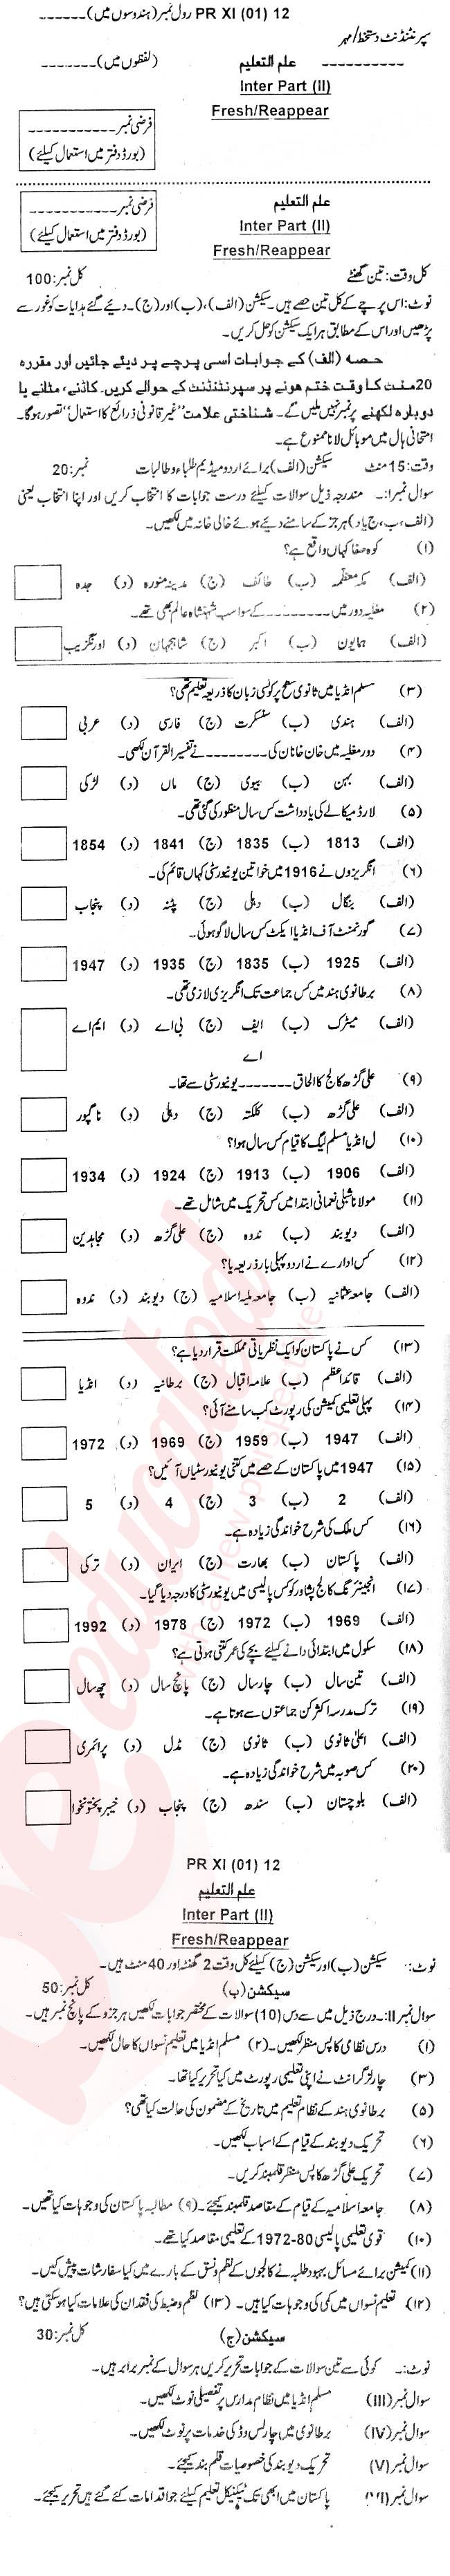 PR XI (01) 12 رول نمبر (ہندسوں میں)ـــــــ
سپرنٹنڈنٹ دستخط/مہر
ـــــــــــــ علم التعلیم (لفظوں میں)ـــــــ
Inter Part (II)
Fresh/Reappear
فرضی نمبرـــــــــــ
(بورڈ دفتر میں استعمال کیلئے)
علم التعلیم
Inter Part (II)
Fresh/Reappear
فرضی نمبرـــــــــــ
(بورڈ دفتر میں استعمال کیلئے)
کل وقت: تین گھنٹے کل نمبر: 100
نوٹ: اس پرچے کے کل تین حصے ہیں۔ سیکشن (الف)، (ب) اور (ج)۔ دیئے گئے ہدایات کو غور سے
پڑھیں اور اس کے مطابق ہر ایک سیکشن کو حل کریں۔
حصہ (الف) کے جوابات اسی پرچے پر دیئے جائیں اور مقررہ
20 منٹ کا وقت ختم ہونے پر سپرنٹنڈنٹ کے حوالے کریں۔ کاٹنے، مٹانے یا
دوبارہ لکھنے پر نمبر نہیں ملیں گے۔ شناختی علامت "غیر قانونی ذرائع کا استعمال" تصور ہوگا۔
امتحانی ہال میں موبائل لانا ممنوع ہے۔
وقت: 15 منٹ سیکشن (الف) برائے اردو میڈیم طلباء و طالبات نمبر: 20
سوال نمبرا:۔ مندرجہ ذیل سوالات کیلئے درست جوابات کا انتخاب کریں اور اپنا انتخاب یعنی
(الف، ب، ج یا د) ہر جز کے سامنے دیئے ہوئے خالی خانہ میں لکھیں۔
(۱) کوہ صفا کہاں واقع ہے؟
(الف) مکہ معظمہ (ب) طائف (ج) مدینہ منورہ (د) جدہ
(۲) مغلیہ دور میں ـــــــــ کے سوا سب شہنشاہ عالم بھی تھے۔
(الف) ہمایون (ب) اکبر (ج) شاہجہان (د) اورنگزیب
(۳) مسلم انڈیا میں ثانوی سطح پر کونسی زبان کا ذریعہ تعلیم تھی؟
(الف) ہندی (ب) سنسکرت (ج) فارسی (د) عربی
(۴) دور مغلیہ میں خان خانان کی ـــــــــ نے تفسیر القرآن لکھی۔
(الف) بہن (ب) بیوی (ج) ماں (د) لڑکی
(۵) لارڈ میکالے کی یادداشت کس سال منظور کی گئی تھی۔
(الف) 1813 (ب) 1835 (ج) 1841 (د) 1854
(۶) انگریزوں نے 1916 میں خواتین یونیورسٹی کہاں قائم کی۔
(الف) بنگال (ب) دہلی (ج) پٹنہ (د) پنجاب
(۷) گورنمنٹ آف انڈیا ایکٹ کس سال لاگو ہوئی۔
(الف) 1925 (ب) 1835 (ج) 1935 (د) 1947
(۸) برطانوی ہند میں کس جماعت تک انگریزی لازمی تھی۔
(الف) میٹرک (ب) ایف (ج) بی اے (د) ایم اے
اے
(۹) علی گڑھ کالج کا الحاق ـــــــــ یونیورسٹی سے تھا۔
(الف) علی گڑھ (ب) کلکتہ (ج) دہلی (د) ناگپور
(۱۰) ل انڈیا مسلم لیگ کا قیام کس سال ہوا؟
(الف) 1906 (ب) 1913 (ج) 1924 (د) 1934
(۱۱) مولانا شبلی نعمانی ابتدا میں کس تحریک میں شامل تھے۔
(الف) دیوبند (ب) ندوہ (ج) علی گڑھ (د) مجاہدین
(۱۲) کس ادارے نے اردو پہلی بار ذریعہ یا؟
(الف) جامعہ عثمانیہ (ب) جامعہ ملیہ اسلامیہ (ج) دیوبند (د) ندوہ
(۱۳) کس نے پاکستان کو ایک نظریاتی مملکت قرار دیا ہے؟
(الف) قائداعظم (ب) علامہ اقبال (ج) برطانیہ (د) انڈیا
(۱۴) پہلی تعلیمی کمیشن کی رپورٹ کب سامنے آئی؟
(الف) 1947 (ب) 1959 (ج) 1969 (د) 1972
(۱۵) 1947 میں پاکستان کے حصے میں کتنی یونیورسٹیاں آئیں؟
(الف) 2 (ب) 3 (ج) 4 (د) 5
(۱۶) کس ملک کی شرح خواندگی زیادہ ہے۔
(الف) پاکستان (ب) بھارت (ج) ایران (د) ترکی
(۱۷) انجینئرنگ کالج پشاور کو کس پالیسی میں یونیورسٹی کا درجہ دیا گیا۔
(الف) 1969 (ب) 1972 (ج) 1978 (د) 1992
(۱۸) سکول میں ابتدائی دانے کیلئے بچے کی عمر کتنی ہوتی ہے؟
(الف) تین سال (ب) چار سال (ج) پانچ سال (د) چھ سال
(۱۹) ترک مدرسہ اکثر کن جماعتوں سے ہوتا ہے۔
(الف) اعلیٰ ثانوی (ب) ثانوی (ج) مڈل (د) پرائمری
(۲۰) کس صوبہ میں شرح خواندگی زیادہ ہے۔
(الف) بلوچستان (ب) سندھ (ج) پنجاب (د) خیبر پختونخوا
PR XI (01) 12
علم التعلیم
Inter Part (II)
Fresh/Reappear
نوٹ: سیکشن (ب) اور سیکشن (ج) کیلئے کل وقت 2 گھنٹہ اور 40 منٹ ہیں۔
سیکشن (ب) کل نمبر: 50
سوال نمبر II:۔ درج ذیل میں سے دس (10) سوالات کے مختصر جوابات لکھیں ہر جزو کے پانچ نمبر ہیں۔
(۱) درس نظامی کا پس منظر لکھیں۔ (۲) مسلم انڈیا میں تعلیم نسواں کا حال لکھیں۔
(۳) چارلز گرانٹ نے اپنی تعلیمی رپورٹ میں کیا تحریر کیا تھا۔
(۵) برطانوی ہند کے نظام تعلیم میں تاریخ کے مضمون کی حالت کیا تھی؟
(۶) تحریک دیوبند کے قیام کے اسباب لکھیں۔
(۷) تحریک علی گڑھ کا پس منظر قلمبند کریں۔
(۸) جامعہ اسلامیہ کے قیام کے مقاصد قلمبند کیجئے۔ (۹) مطالبہ پاکستان کی وجوہات کیا تھیں۔
(۱۰) قومی تعلیمی پالیسی 80-1972 کے تعلیمی مقاصد کیا تھے۔
(۱۱) کمیشن برائے مسائل بہبود طلبہ نے کالجوں کے نظم و نسق کے بارے میں کیا سفارشات پیش کیں۔
(۱۲) تعلیم نسواں میں کمی کی وجوہات کیا ہیں۔ (۱۳) نظم و ضبط کی فقدان کی علامات کیا ہو سکتی ہیں؟
سیکشن (ج) کل نمبر: 30
نوٹ:۔ کوئی سے تین سوالات کے جوابات تحریر کریں ہر سوال کے نمبر برابر ہیں۔
سوال نمبر (III) مسلم انڈیا میں نظام مدارس پر تفصیلی نوٹ لکھیں۔
سوال نمبر (IV) برطانوی میں چارلس وڈ کی خدمات پر نوٹ لکھیں۔
سوال نمبر (V) تحریک دیوبند کی خصوصیات قلم بند کیجئے۔
سوال نمبر (VI) پاکستان میں ابھی تک ٹیکنیکل تعلیم کیلئے جو اقدامات کئے گئے ہیں تحریر کیجئے۔